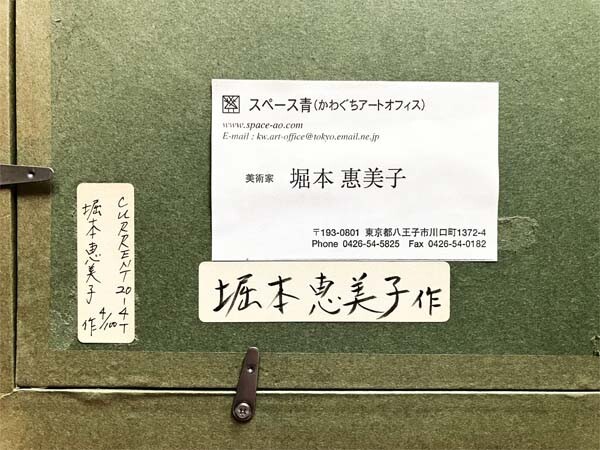 スペース青(かわぐちアートオフィス)
www.space-ao.com
E-mail : kw.art-office@tokyo.email.ne.jp
美術家 堀本 惠美子
〒193-0801 東京都八王子市川口町1372-4
Phone 0426-54-5825 Fax 0426-54-0182
CURRENT 20-4T
4/100
堀本恵美子 作
堀本恵美子作